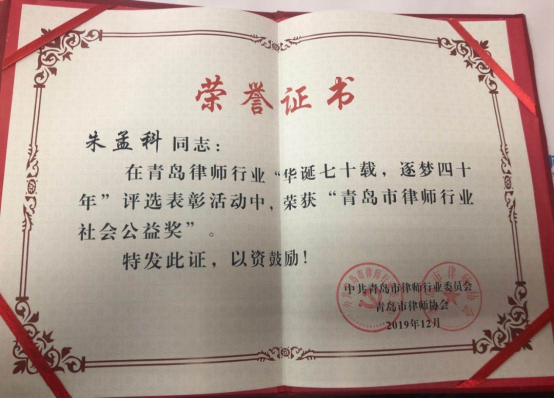 荣誉证书
朱孟科同志：
在青岛律师行业“华诞七十载，逐梦四十
年”评选表彰活动中，荣获“青岛市律师行业
社会公益奖”。
特发此证，以资鼓励！
中共青岛市律师行业委员会
青岛市律师协会
2019年12月